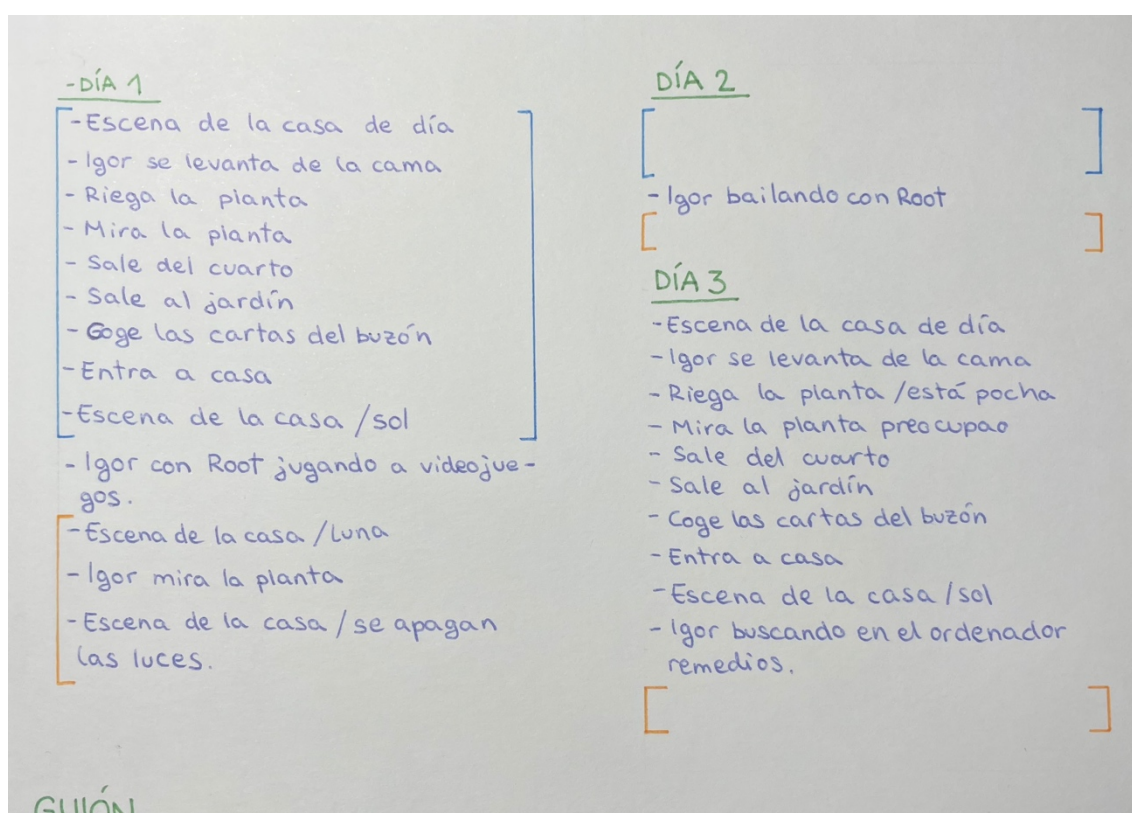 -DÍA 1
-Escena de la casa de día
-Igor se levanta de la cama
- Riega la planta
- Mira la planta
- Sale del cuarto
- Sale al jardín
- Coge las cartas del buzón
-Entra a casa
-Escena de la casa /sol
- Igor con Root jugando a videojue-
gos.
-Escena de la casa /luna
- Igor mira la planta
-Escena de la casa / se apagan
las luces.
DÍA 2
- Igor bailando con Root
DÍA 3
-Escena de la casa de día
-Igor se levanta de la cama
- Riega la planta /está pocha
- Mira la planta preocupao
- Sale del cuarto
- Sale al jardín
- Coge las cartas del buzón
- Entra a casa
-Escena de la casa /sol
- Igor buscando en el ordenador
remedios.
GUIÓN